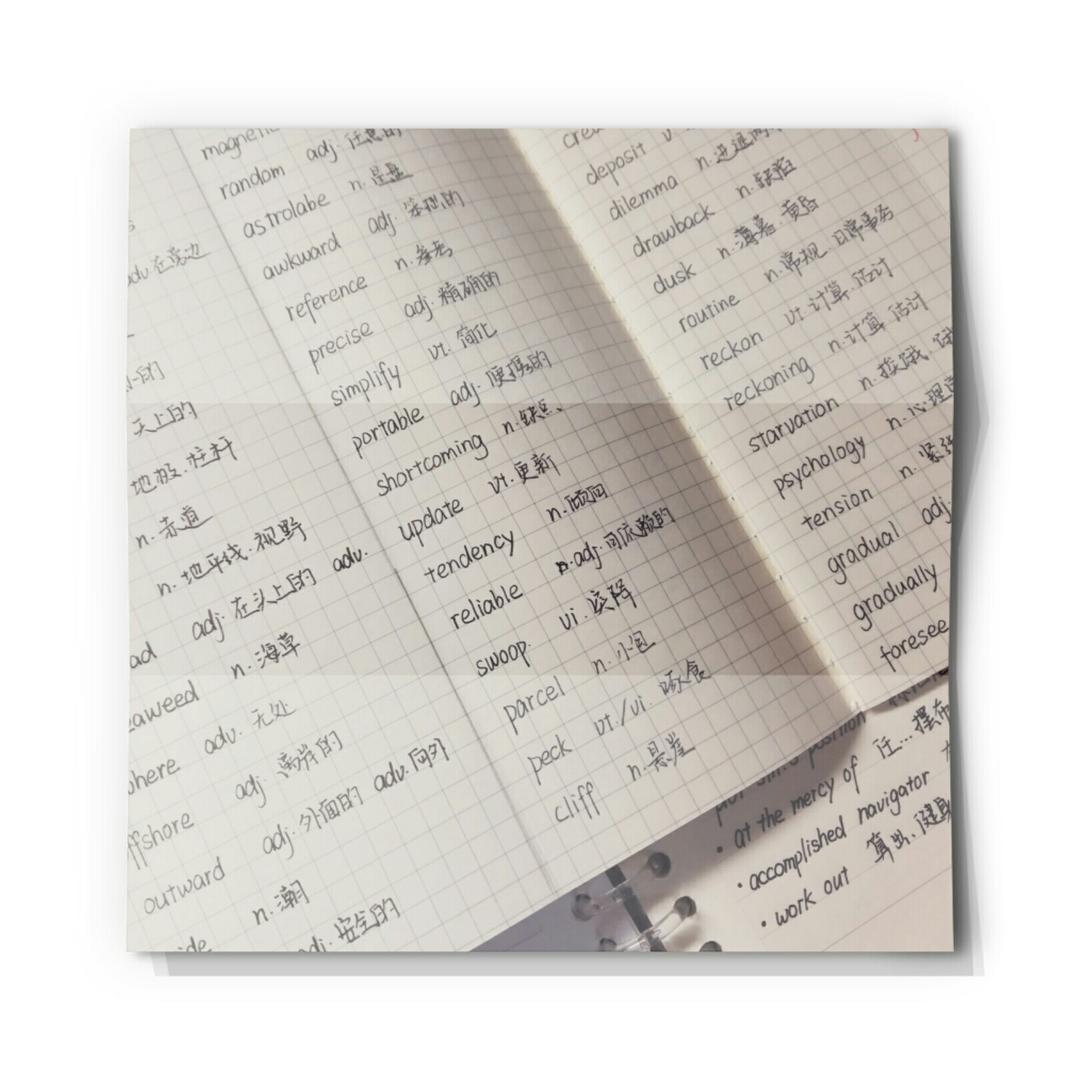 adv.在旁边
天上的
地极.柱杆
n.赤道
n.地平线.视野
ad adj.在头上的 adv.
eaweed n.海草
here adv.无处
ffshore adj.离岸的
outward adj.外面的 adv.向外
ide n.潮
adj.安全的
magnetic
random adj.任意的
astrolabe n.星盘
awkward adj.笨拙的
reference n.参考
precise adj.精确的
simplify vt.简化
portable adj.便携的
shortcoming n.缺点
update vt.更新
tendency n.倾向
reliable adj.可依赖的
swoop vi.突降
parcel n.小包
peck vt./vi.啄食
cliff n.悬崖
deposit
dilemma n.进退两
drawback n.缺陷
dusk n.薄暮.黄昏
routine n.常规.日常事务
reckon vt.计算.估计
reckoning n.计算.估计
starvation n.挨饿.
psychology n.心理
tension n.紧张
gradual adj.
gradually
foresee
position
• at the mercy of 任...摆布
• accomplished navigator
• work out 算出.